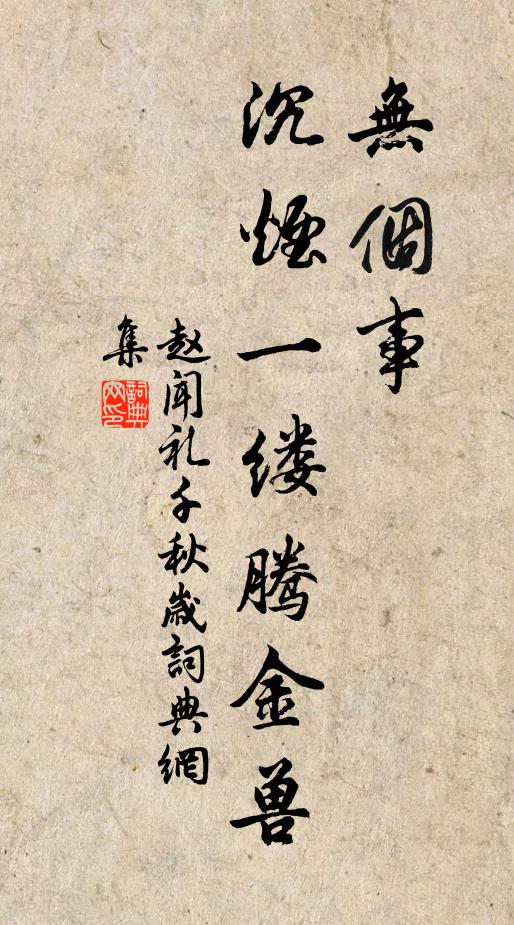 無個事
沉煙一缕腾金兽
赵闻礼千秋歲詞典網
集
詞典
网印